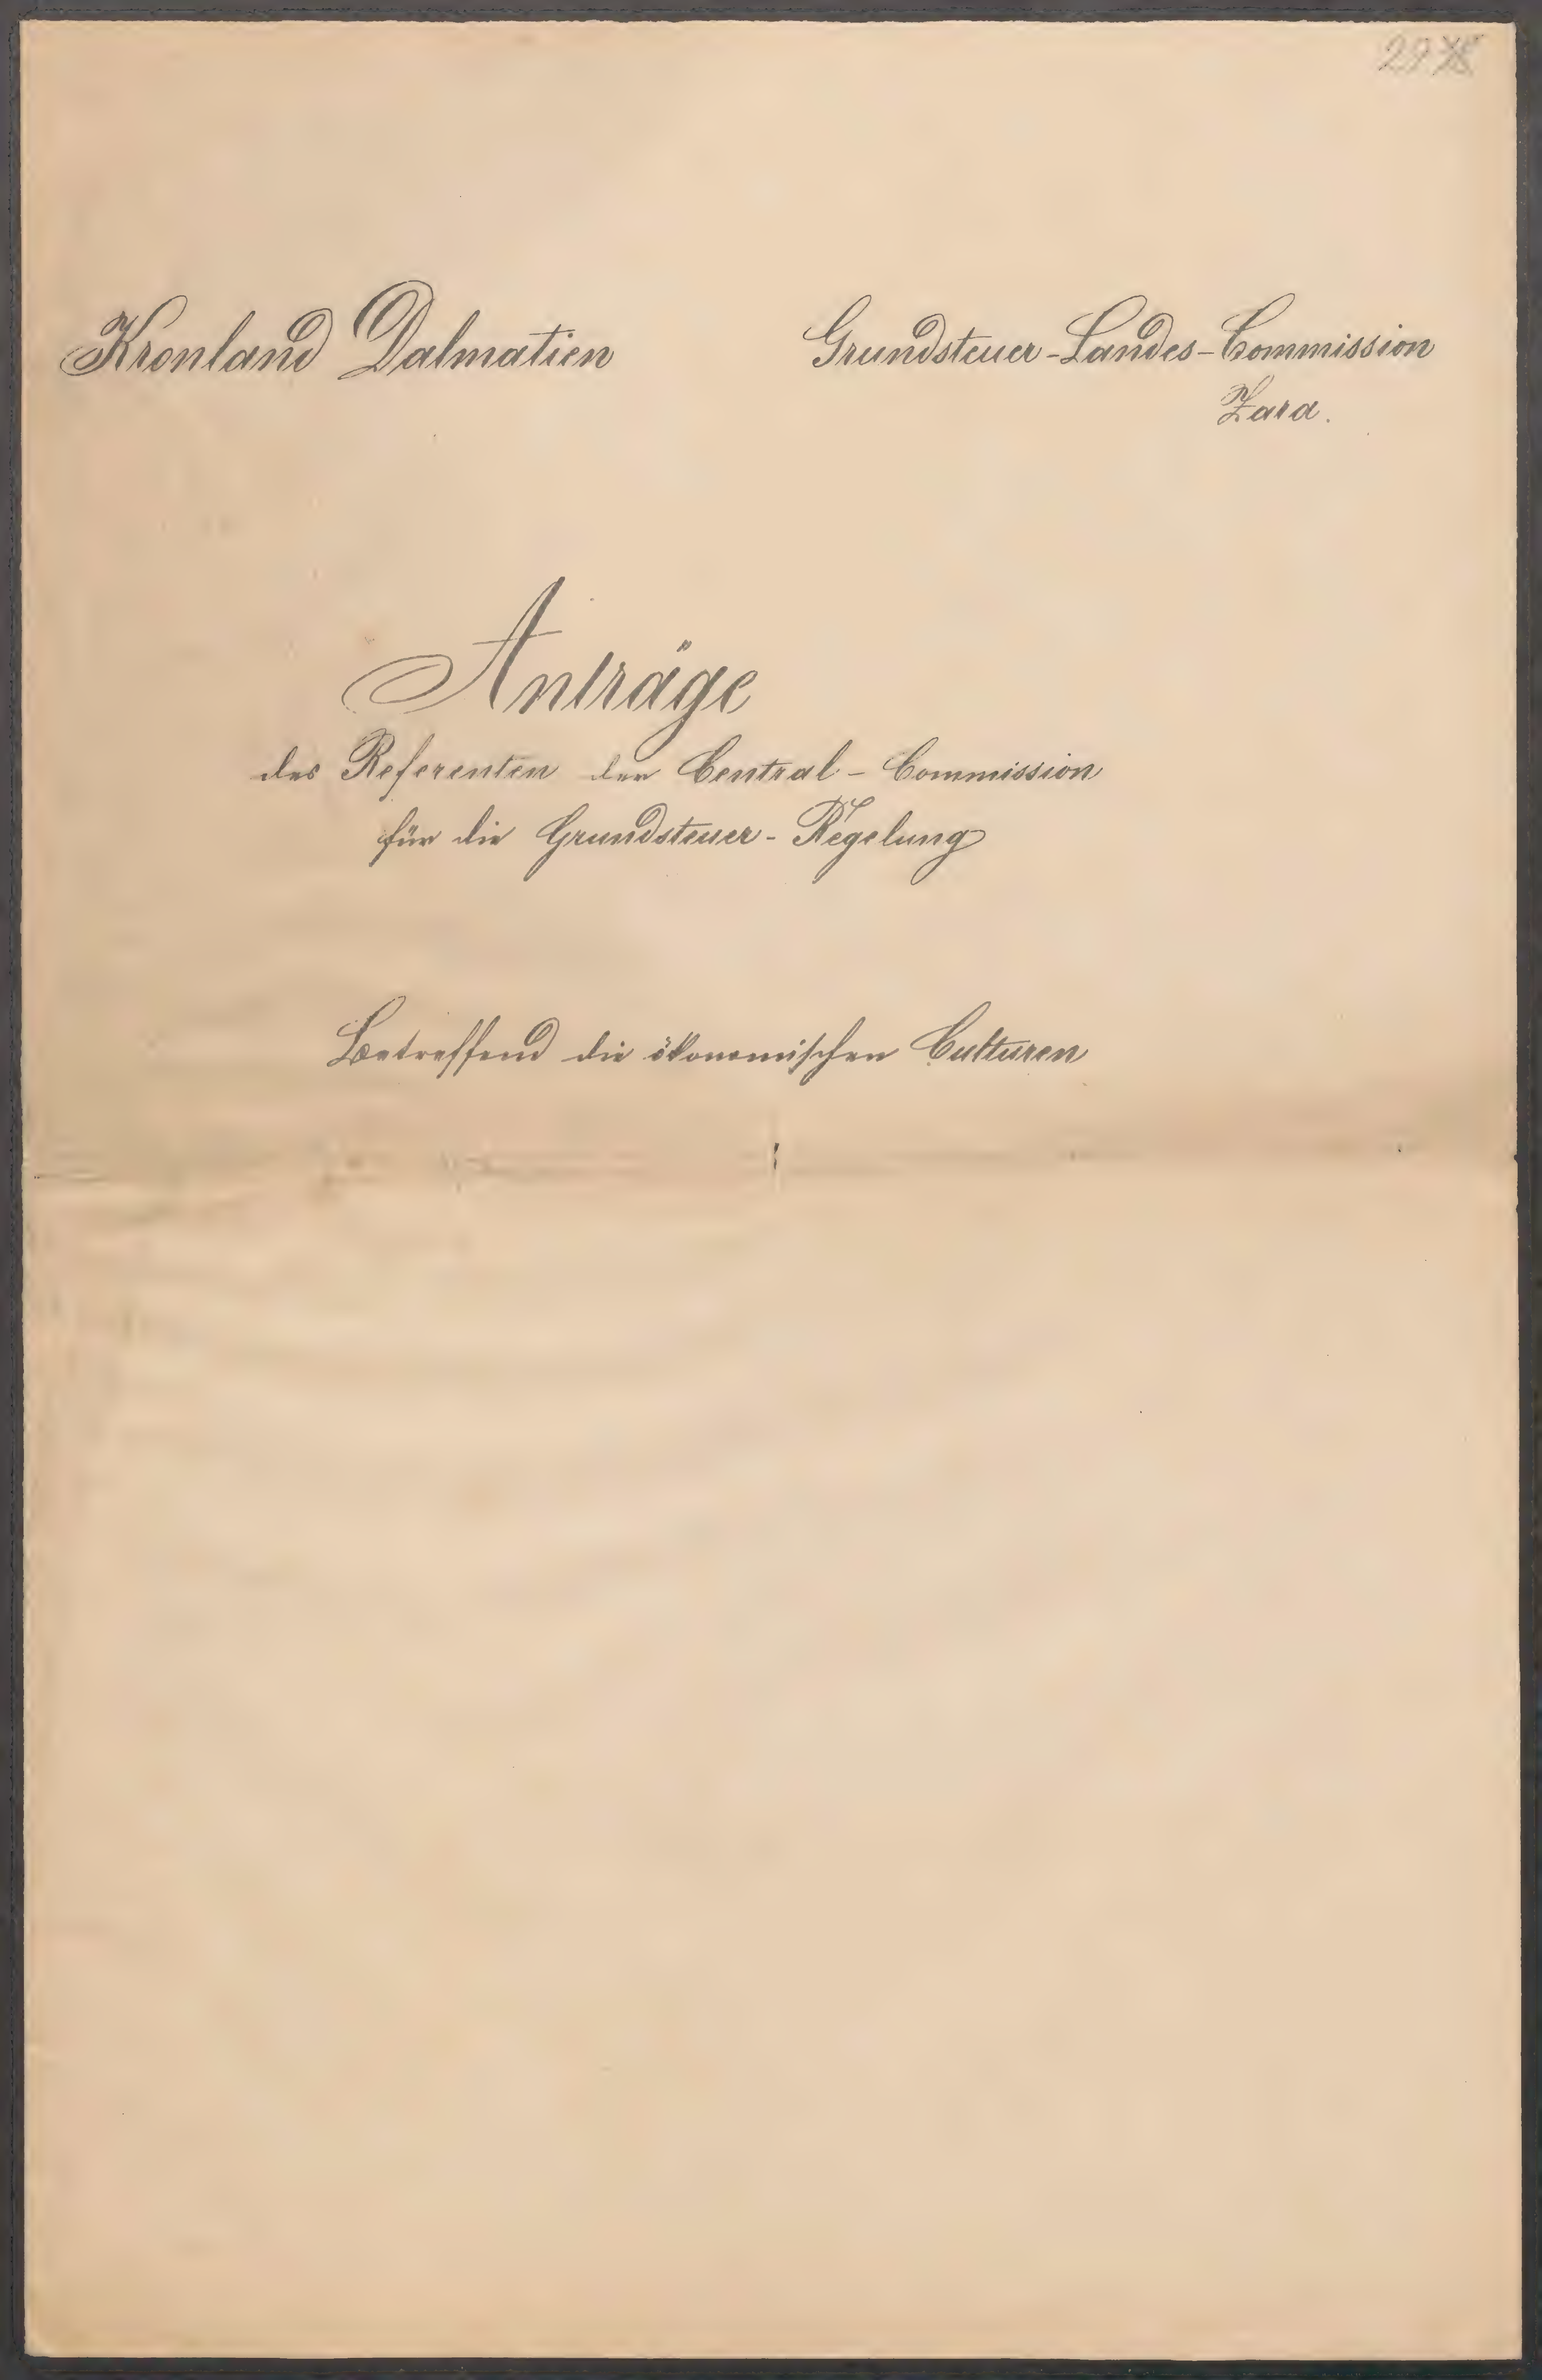 Kronland Dalmatien
Grundsteuer-Landes-Commission
Zara.
Anträge
des Referenten der Central-Commission
für die Grundsteuer-Regelung
Betreffend die ökonomischen Culturen